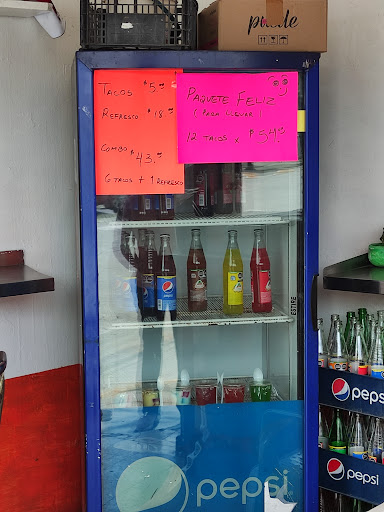 TACOS $5.00
REFRESCO $18.00
COMBO $43.00
6 TACOS + 1 REFRESCO
PAQUETE FELIZ
(PARA LLEVAR)
12 TACOS X $54.00
ESTIRE
pepsi
pepsi
pepsi